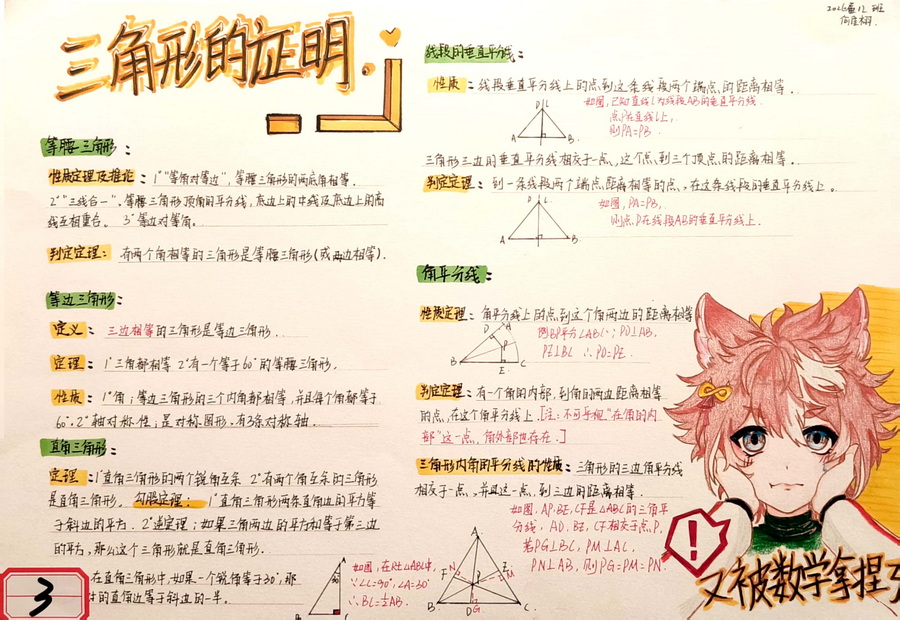 三角形的证明.
2026届12班
等腰三角形:
性质定理及推论: 1°"等角对等边",等腰三角形的两底角相等.
2°"三线合一".等腰三角形顶角的平分线,底边上的中线及底边上的高
线互相重合。 3°等边对等角。
判定定理: 有两个角相等的三角形是等腰三角形(或两边相等).
等边三角形:
定义: 三边相等的三角形是等边三角形.
定理: 1°三角都相等 2°有一个等于60°的等腰三角形.
性质: 1°角:等边三角形的三个内角都相等,并且每个角都等于
60°.2°轴对称性:是对称图形.有3条对称轴.
直角三角形:
定理:1°直角三角形的两个锐角互余 2°有两个角互余的三角形
是直角三角形. 勾股定理: 1°直角三角形两条直角边的平方等
于斜边的平方. 2°逆定理:如果三角两边的平方和等于第三边
的平方,那么这个三角形就是直角三角形.
在直角三角形中,如果一个锐角等于30°,那
的直角边等于斜边的一半。
如图,在Rt△ABC中,
∵∠C=90°,∠A=30°
∴BC=½AB.
3
线段的垂直平分线:
性质: 线段垂直平分线上的点到这条线段两个端点的距离相等.
如图,已知直线l为线段AB的垂直平分线.
点P在直线l上,
则PA=PB.
A B
三角形三边的垂直平分线相交于一点,这个点到三个顶点的距离相等.
判定定理: 到一条线段两个端点距离相等的点,在这条线段的垂直平分线上。
如图,PA=PB,
则点P在线段AB的垂直平分线上.
A B
角平分线:
性质定理: 角平分线上的点到这个角两边的距离相等
则BP平分∠ABC;PD⊥AB,
PE⊥BC ∴PD=PE.
D A P B E C
判定定理: 有一个角的内部,到角的两边距离相等
的点,在这个角平分线上[注:不可忽视"在角的内
部"这一点,角外部也存在.]
三角形内角的平分线的性质: 三角形的三边角平分线
相交于一点,并且这一点到三边的距离相等.
如图,AP,BE,CF是△ABC的三角平
分线, AD,BE,CF相交于点P.
若PG⊥BC, PM⊥AC,
PN⊥AB,则PG=PM=PN.
A F N E M P B D G C
!
又被数学拿捏了